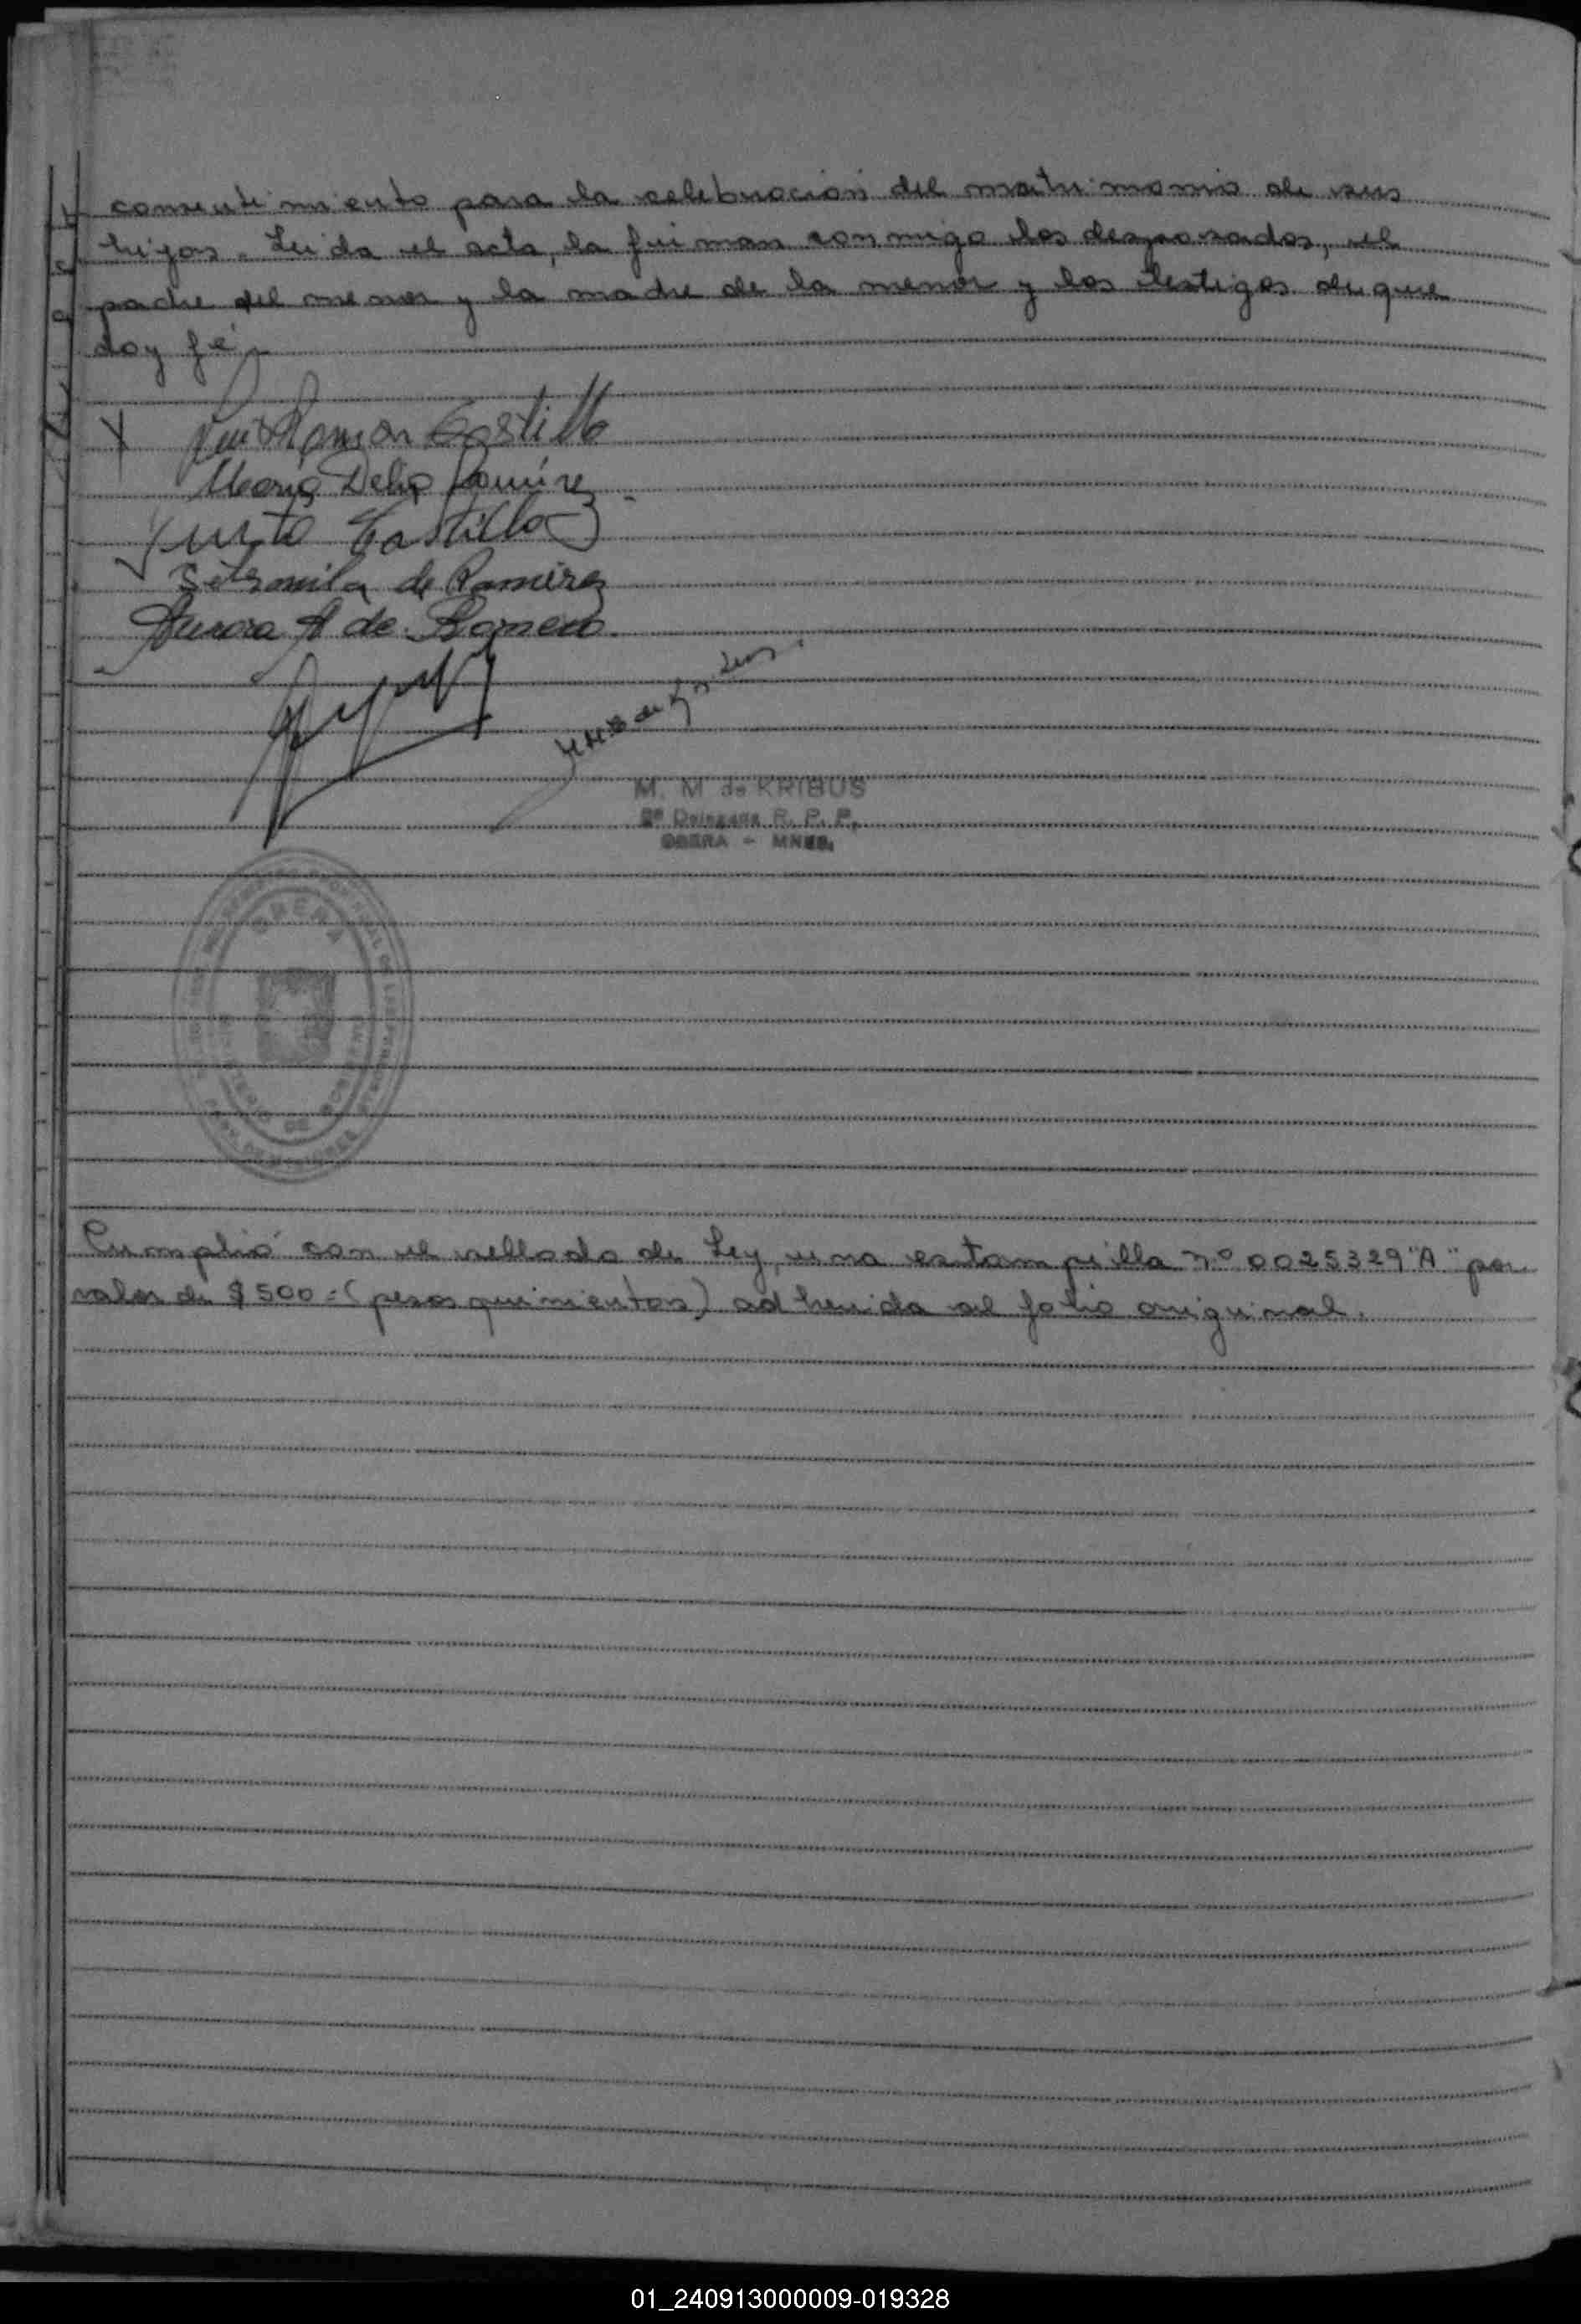 consentimiento para la celebración del matrimonio de sus
hijos. Leida el acta, la firman conmigo los desposados, el
padre del menor y la madre de la menor y los testigos de que
doy fé.-
Luis Ramon Castillo
María Delia Ramírez
Justo Castillo
de Ramirez
Aurora A de Romero.
M. M de KRIBUS
2ª Delegada R. P. P.
OBERA - MNES.
OBERA
Cumplió con el sellado de Ley, una estampilla nº 0025329 "A" por
valor de $ 500= (pesos quinientos) adherida al folio original.
01_240913000009-019328